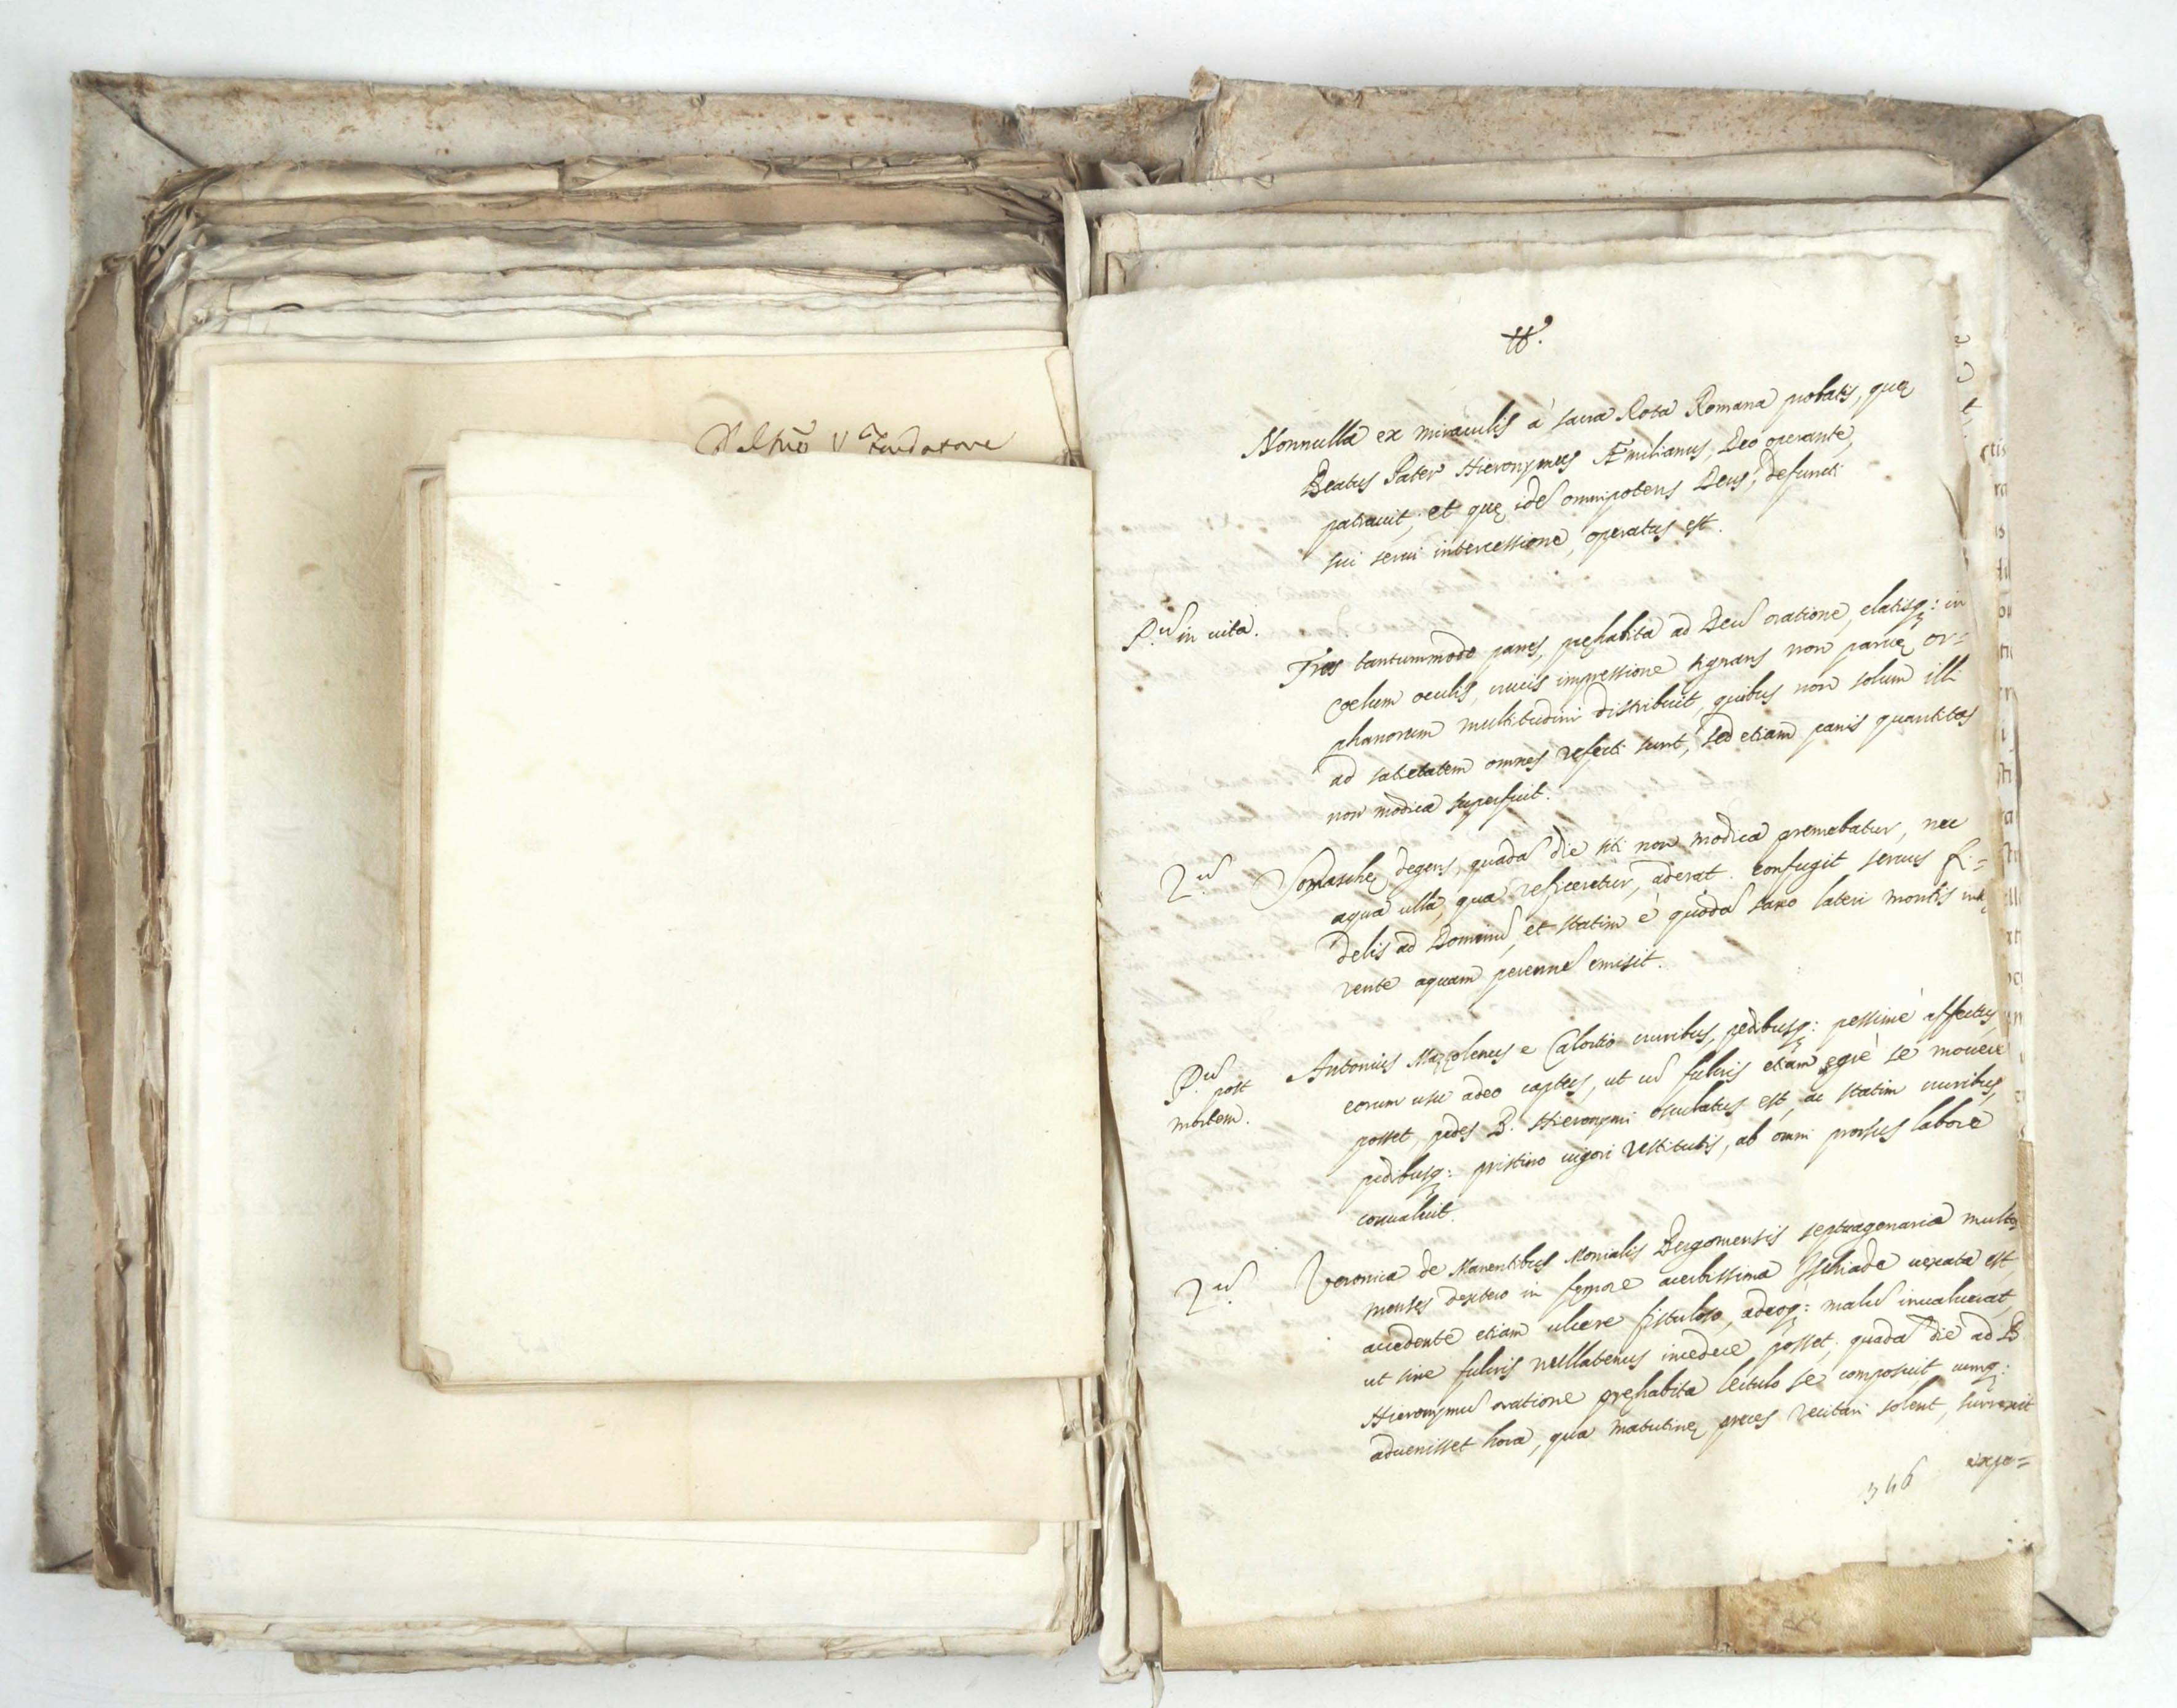 Fundatore
Nonnulla ex miraculis à sacra Rota Romana probatis, quę
Beatus Pater Hieronymus Æmilianus, Deo operante,
patrauit, et quę idē omnipotens Deus, defuncti
sui serui intercessione, operatus est.
P.ū in uita.
Tres tantummodo panes, pręhabita ad Deū oratione, elatisq: in
Coelum oculis, crucis impressione signans non paruę or=
phanorum multitudini distribuit, quibus non solum illi
ad satietatem omnes refecti sunt, sed etiam panis quantitas
non modica superfuit.
2.ū
Somaschę degens quadā die siti non modica premebatur, nec
aqua ulla, qua reficeretur, aderat. confugit seruus fi=
delis ad Dominū, et statim è quodā saxo lateri montis inhę
rente aquam perennē emisit.
P.ū post
mortem.
Antonius Mazzolenus e Calortio cruribus, pedibusq: pessimè affectus,
eorum usu adeo captus, ut cū fulcris etiam ęgrè se mouere
posset, pedes B. Hieronymi osculatus est, ac statim cruribus,
pedibusq: pristino uigori restitutis, ab omni prorsus labore
conualuit.
2.ū
Veronica de Manentibus Monialis Bergomensis septuagenaria multos
menses dextero in femore acerbissima Ischiade uexata est,
accedente etiam ulcere fistuloso, adeoq: malū inualuerat,
ut sine fulcris nullatenus incedere posset, quadā die ad B.
Hieronymū oratione pręhabita lectulo se composuit, cumq:
aduenisset hora, qua matutinę preces recitari solent, surrexit
expe=
346